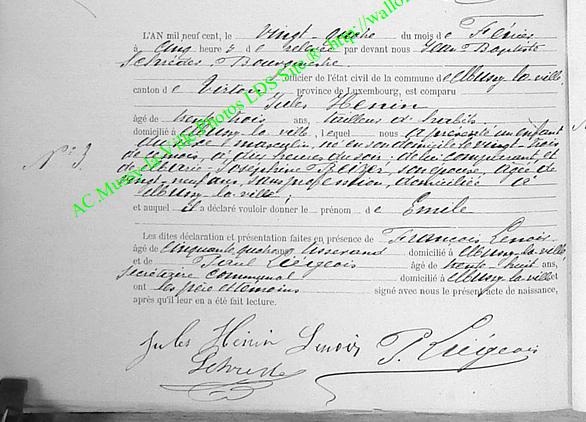 L'AN mil neuf cent, le vingt-quatre du mois de Février
à cinq heures de relevée par devant nous Jean Baptiste
Bourgmestre
officier de l'état civil de la commune de Mussy-la-ville,
canton de Virton province de Luxembourg, est comparu
Jules Hénin
âgé de trente trois ans, tailleur d'habits
domicilié à Mussy-la-ville, lequel nous a présenté un enfant
de sexe masculin, né en son domicile le vingt-trois
de ce mois, à deux heures du soir, de lui comparant et
de Marie Joséphine son épouse, âgée de
vingt-neuf ans, sans profession, domiciliée à
Mussy-la-ville;
N° 3.
et auquel il a déclaré vouloir donner le prénom de Emile
Les dites déclaration et présentation faites en présence de François Lenoir
âgé de cinquante quatre ans domicilié à Mussy-la-ville,
et de Liégeois âgé de trente-huit ans,
secrétaire communal domicilié à Mussy-la-ville
ont les père et témoins signé avec nous le présent acte de naissance,
après qu'il leur en a été fait lecture.
Jules Hénin Lenoir P. Liégeois
AC.Mussy-la-Ville Photos LDS Site @ http://wallo